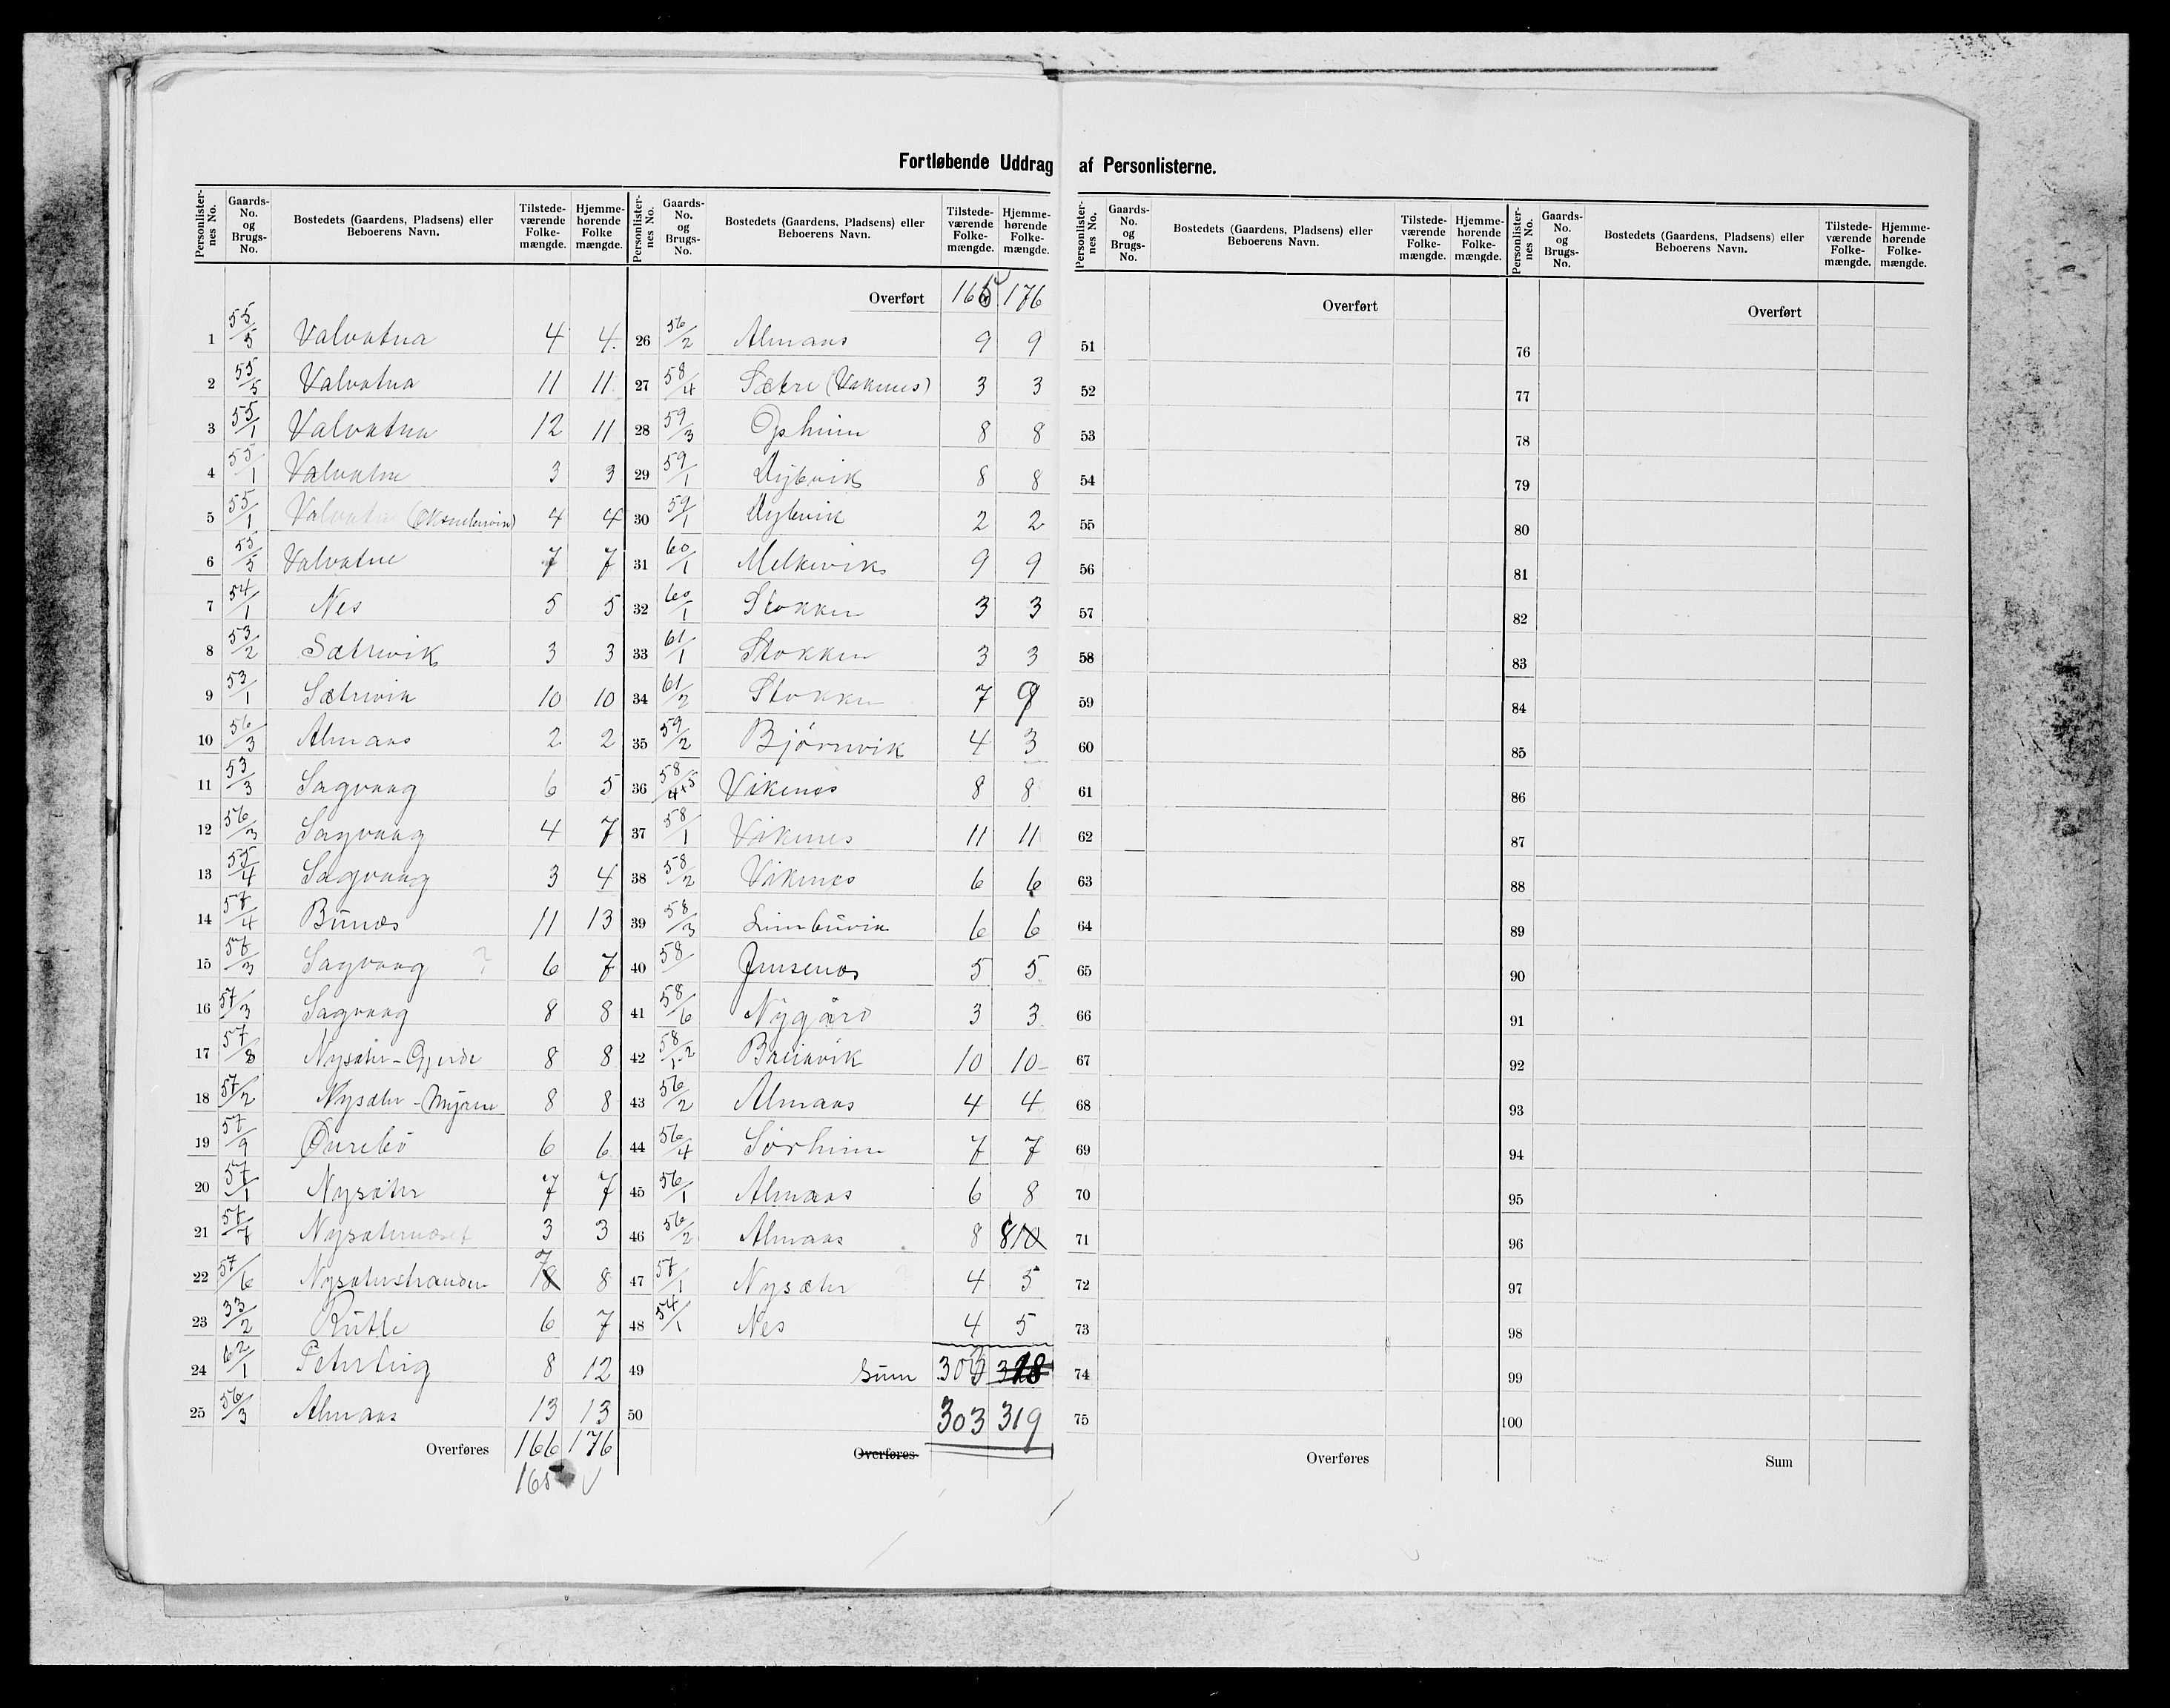 Fortløbende Uddrag af Personlisterne.
Personlister-nes No. Gaards-No. og Brugs-No. Bostedets (Gaardens, Pladsens) eller Beboerens Navn. Tilstede-værende Folke-mængde. Hjemme-hørende Folke mængde.
1 55/5 Valvatna 4 4
2 55/5 Valvatna 11 11
3 55/1 Valvatna 12 11
4 55/1 Valvatne 3 3
5 55/1 Valvatne 4 4
6 55/5 Valvatne 7 7
7 54/1 Nes 5 5
8 53/2 Sætrevik 3 3
9 53/1 Sætrevik 10 10
10 56/3 Almaas 2 2
11 53/3 Sagvaag 6 5
12 56/3 Sagvaag 4 7
13 57/4 Sagvaag 3 4
14 57/4 Bunæs 11 13
15 Sagvaag ? 6 7
16 57/3 Sagvaag 8 8
17 57/8 Nysæter-Gjerde 8 8
18 57/2 Nysæter-Myrene 8 8
19 57/9 Øurebö 6 6
20 57/1 Nysæter 7 7
21 3 3
22 57/6 Nysæterstranden 8 7 8
23 33/2 Rutle 6 7
24 62/1 8 12
25 56/3 Almaas 13 13
Overføres 166 176
165 ✓
Personlister-nes No. Gaards-No. og Brugs-No. Bostedets (Gaardens, Pladsens) eller Beboerens Navn. Tilstede-værende Folke-mængde. Hjemme-hørende Folke-mængde.
Overført 165 176
26 56/2 Almaas 9 9
27 58/4 Sætre (Vikenes) 3 3
28 59/3 Opheim 8 8
29 59/1 Dybvik 8 8
30 59/1 Dybvik 2 2
31 60/1 Melkevik 9 9
32 60/1 Stokken 3 3
33 61/1 Stokken 3 3
34 61/2 Stokken 7 9
35 59/2 Björnvik 4 3
36 58/4+5 Vikenes 8 8
37 58/1 Vikenes 11 11
38 58/2 Vikenes 6 6
39 58/3 Limbuvik 6 6
40 58/ Jensenes 5 5
41 58/6 Nygård 3 3
42 58/1-2 Breiavik 10 10
43 56/2 Almaas 4 4
44 56/4 Sörheim 7 7
45 56/1 Almaas 6 8
46 56/2 Almaas 8 8 10
47 57/1 Nysæter 4 5
48 54/1 Nes 4 5
49 Sum 303 318
50 303 319
Overføres
Personlister-nes No. Gaards-No. og Brugs-No. Bostedets (Gaardens, Pladsens) eller Beboerens Navn. Tilstede-værende Folke-mængde. Hjemme-hørende Folke-mængde.
Overført
51
52
53
54
55
56
57
58
59
60
61
62
63
64
65
66
67
68
69
70
71
72
73
74
75
Overføres
Personlister-nes No. Gaards-No. og Brugs-No. Bostedets (Gaardens, Pladsens) eller Beboerens Navn. Tilstede-værende Folke-mængde. Hjemme-hørende Folke-mængde.
Overført
76
77
78
79
80
81
82
83
84
85
86
87
88
89
90
91
92
93
94
95
96
97
98
99
100
Sum